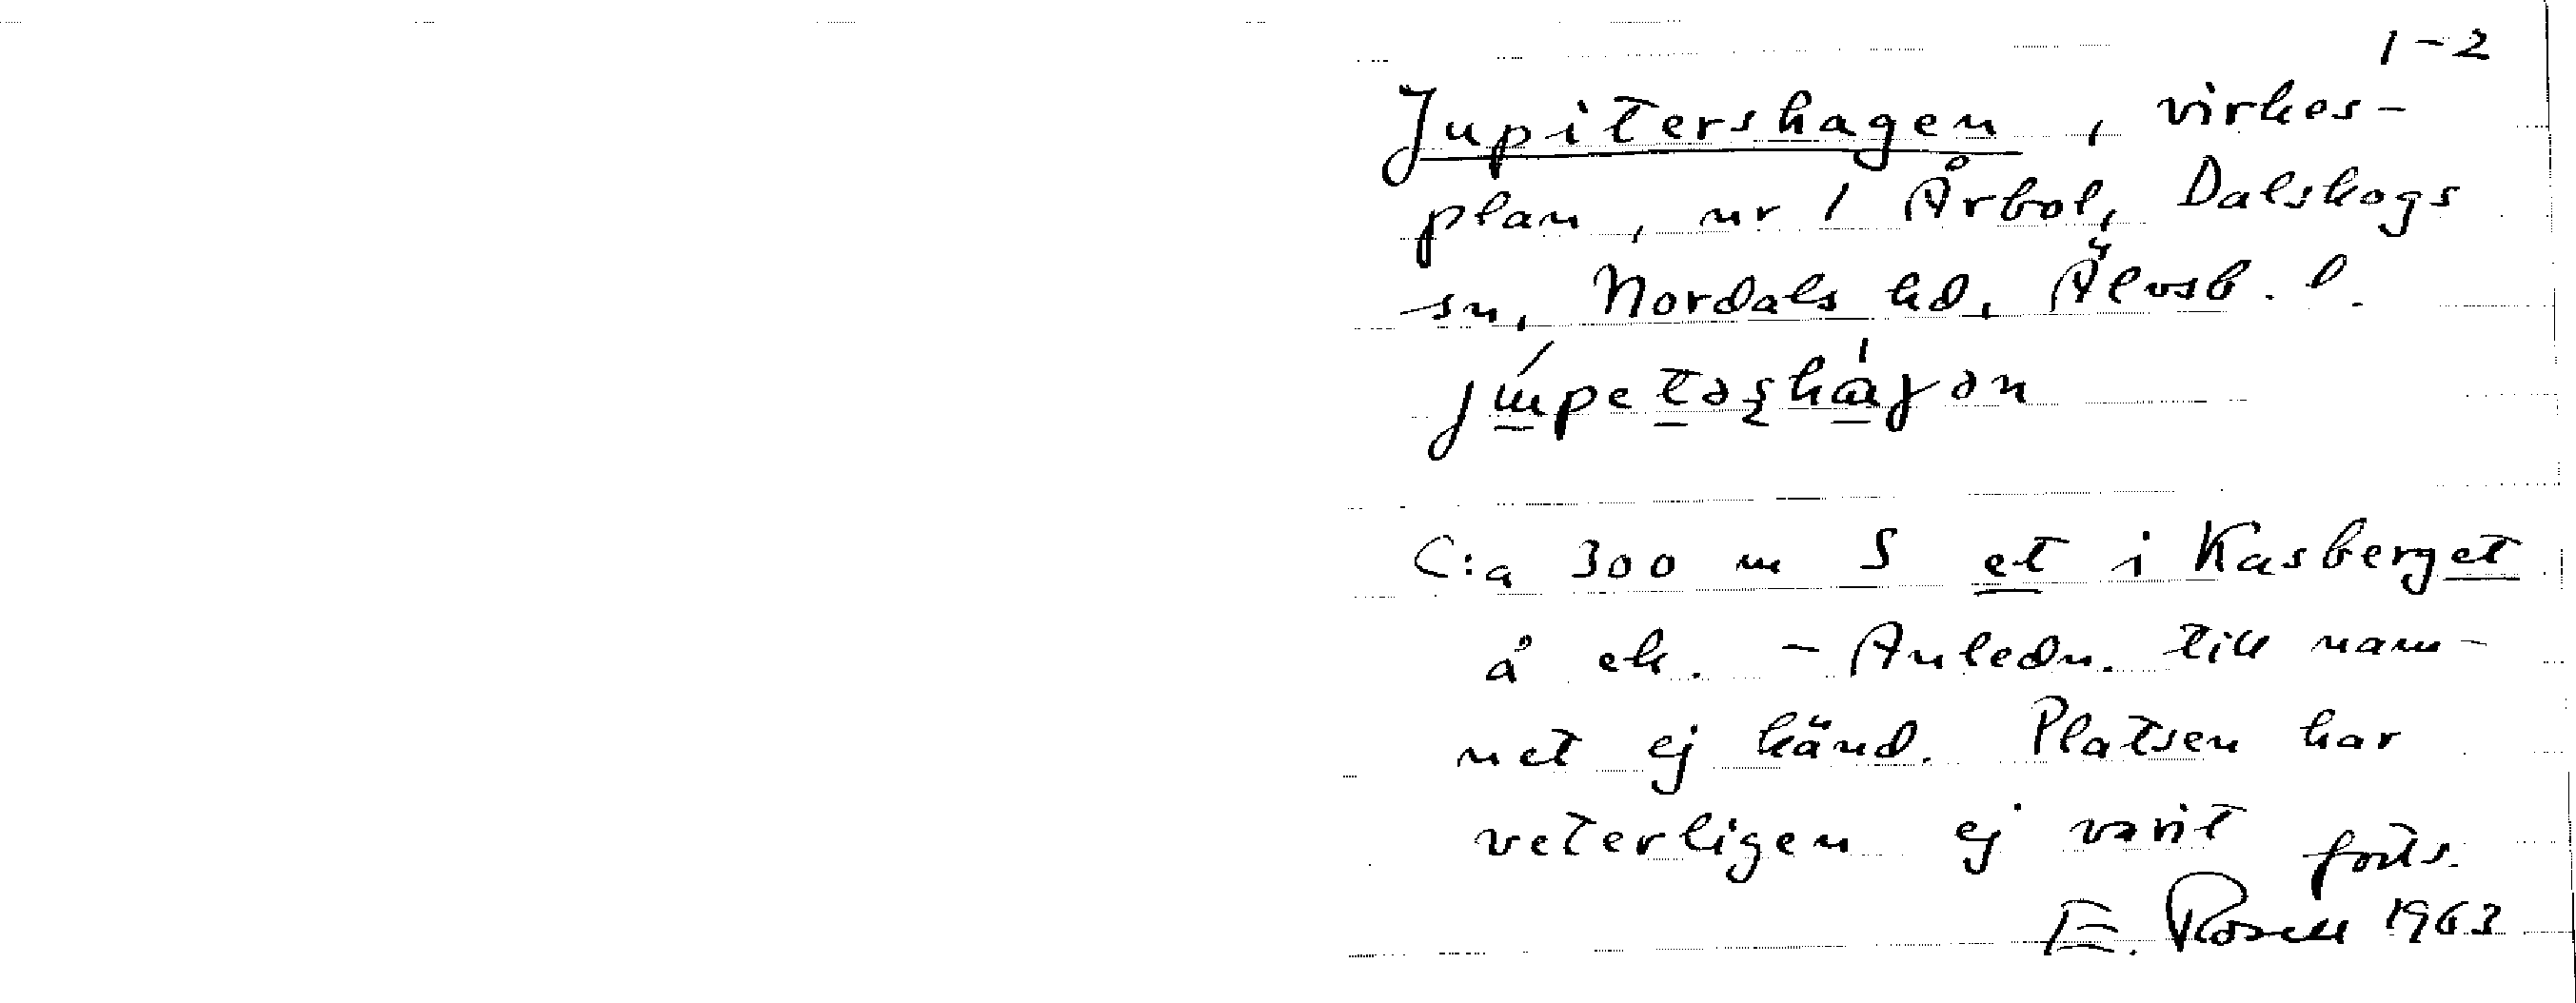 1-2
Jupitershagen, virkes-
plan, nr 1 Årbol, Dalskogs
sn, Nordals hd, Älvsb. l.
C:a 300 m S et i Kasberget
å ek. - Anledn. till nam-
net ej känd. Platsen har
veterligen ej varit forts.
E. Rosell 1963